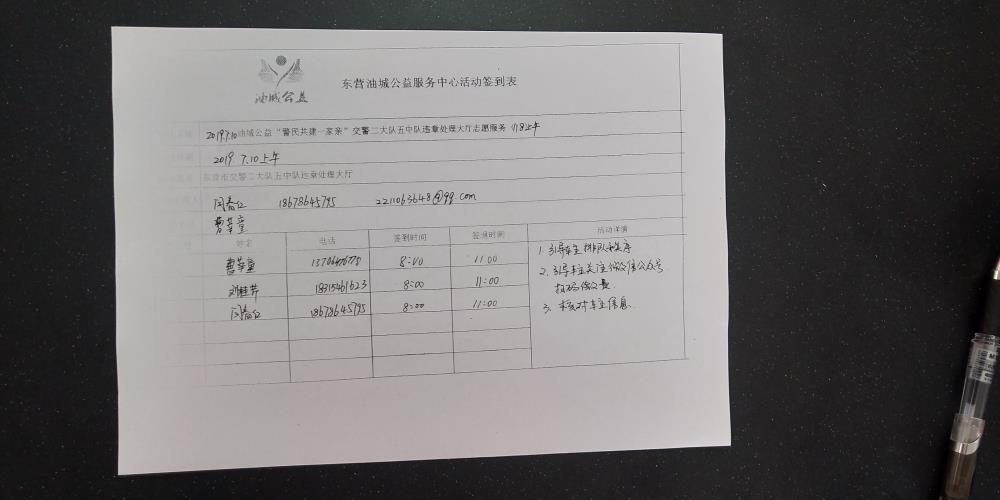 油城公益
东营油城公益服务中心活动签到表
2019.7.10油城公益“警民共建一家亲”交警二大队五中队违章处理大厅志愿服务 上午
2019 7.10上午
东营市交警二大队五中队违章处理大厅
闫春红 18678645795 2211063648@qq.com
曹莘童
姓名 电话 签到时间 签退时间 活动详情
曹莘童 8:00 11:00
刘桂芹 18315461623 8:00 11:00
闫春红 18678645795 8:00 11:00
1. 引导车主排队秩序
2. 引导车主关注微信公众号
扫码缴费.
3. 核对车主信息.